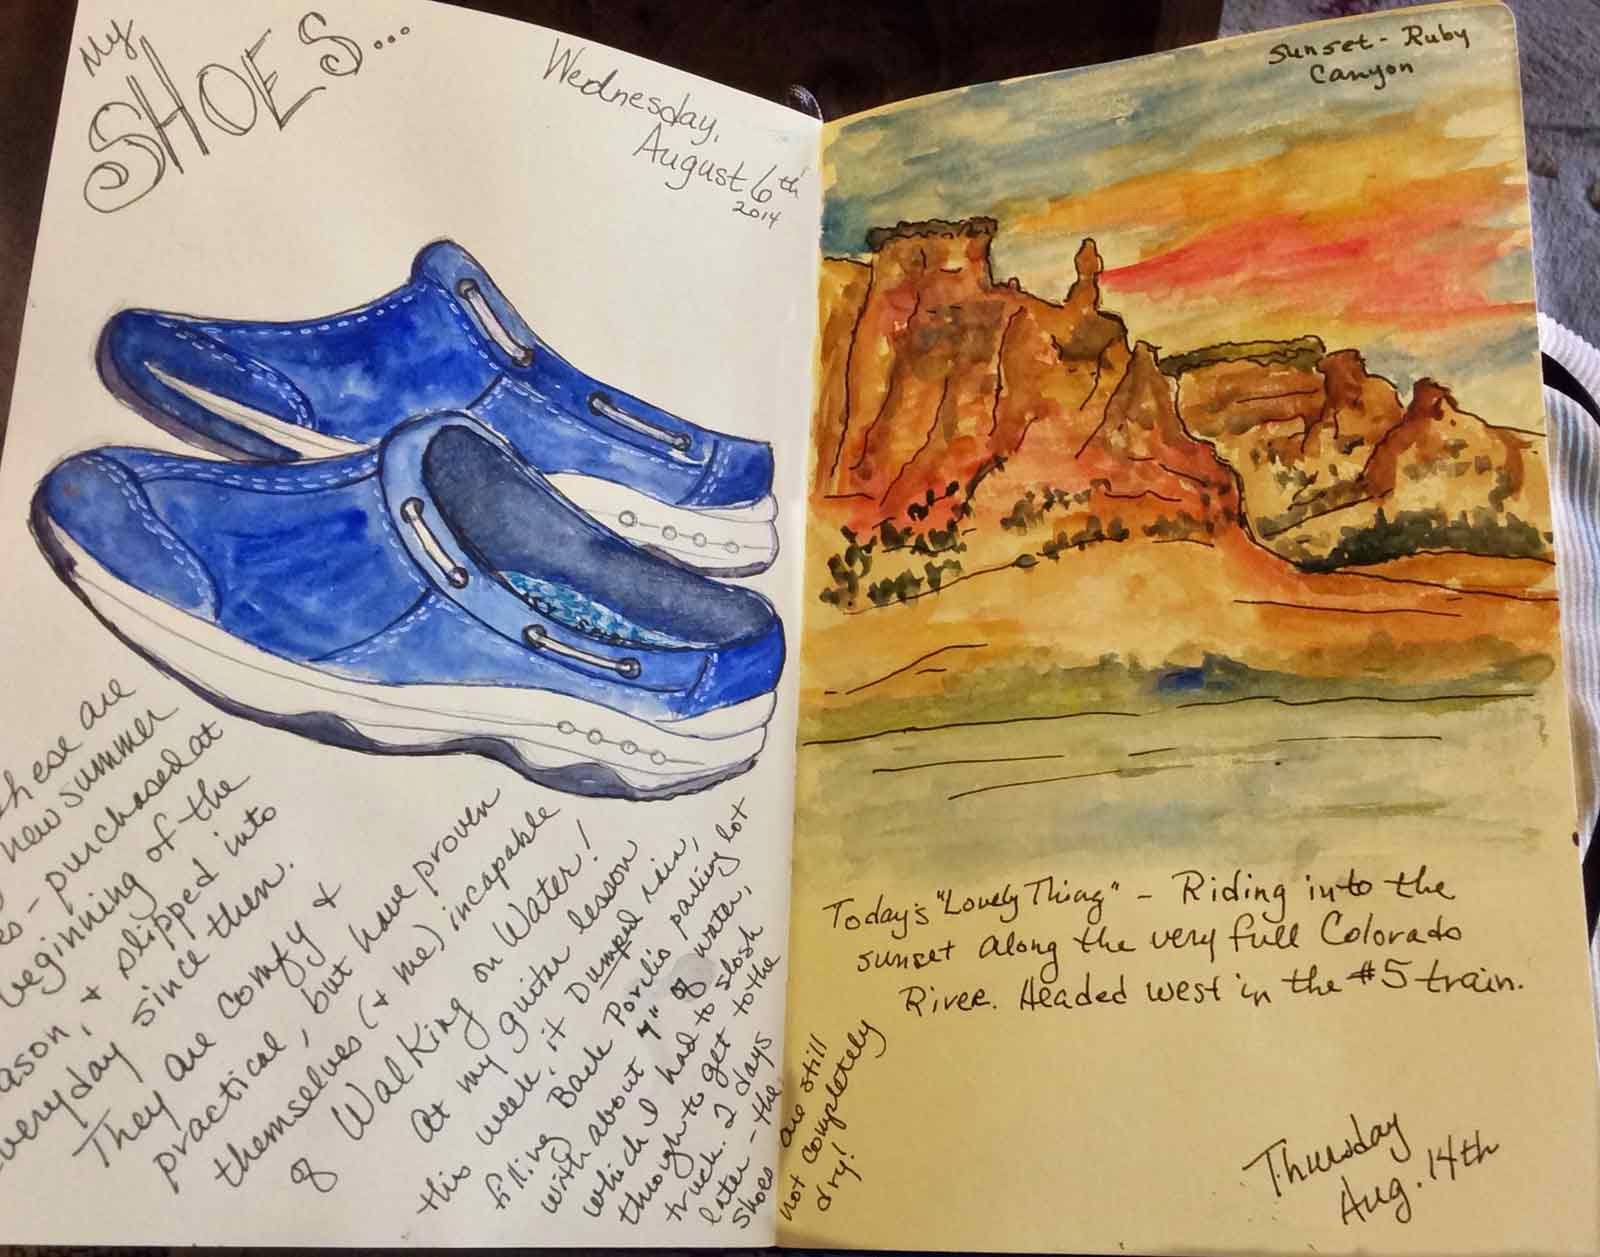 My
SHOES...
Wednesday,
August 6th
2014
These are
new summer
- purchased at
beginning of the
ason, & slipped into
everyday since then.
They are comfy &
practical, but have proven
themselves (& me) incapable
of Walking on Water!
At my guitar lesson
this week, it Dumped rain,
filling Back Porch's parking lot
with about 7" of water,
which I had to slosh
through to get to the
truck. 2 days
later - the
shoes are still
not completely
dry!
Sunset - Ruby
Canyon
Today's "Lovely Thing" - Riding into the
sunset along the very full Colorado
River. Headed west in the #5 train.
Thursday
Aug. 14th